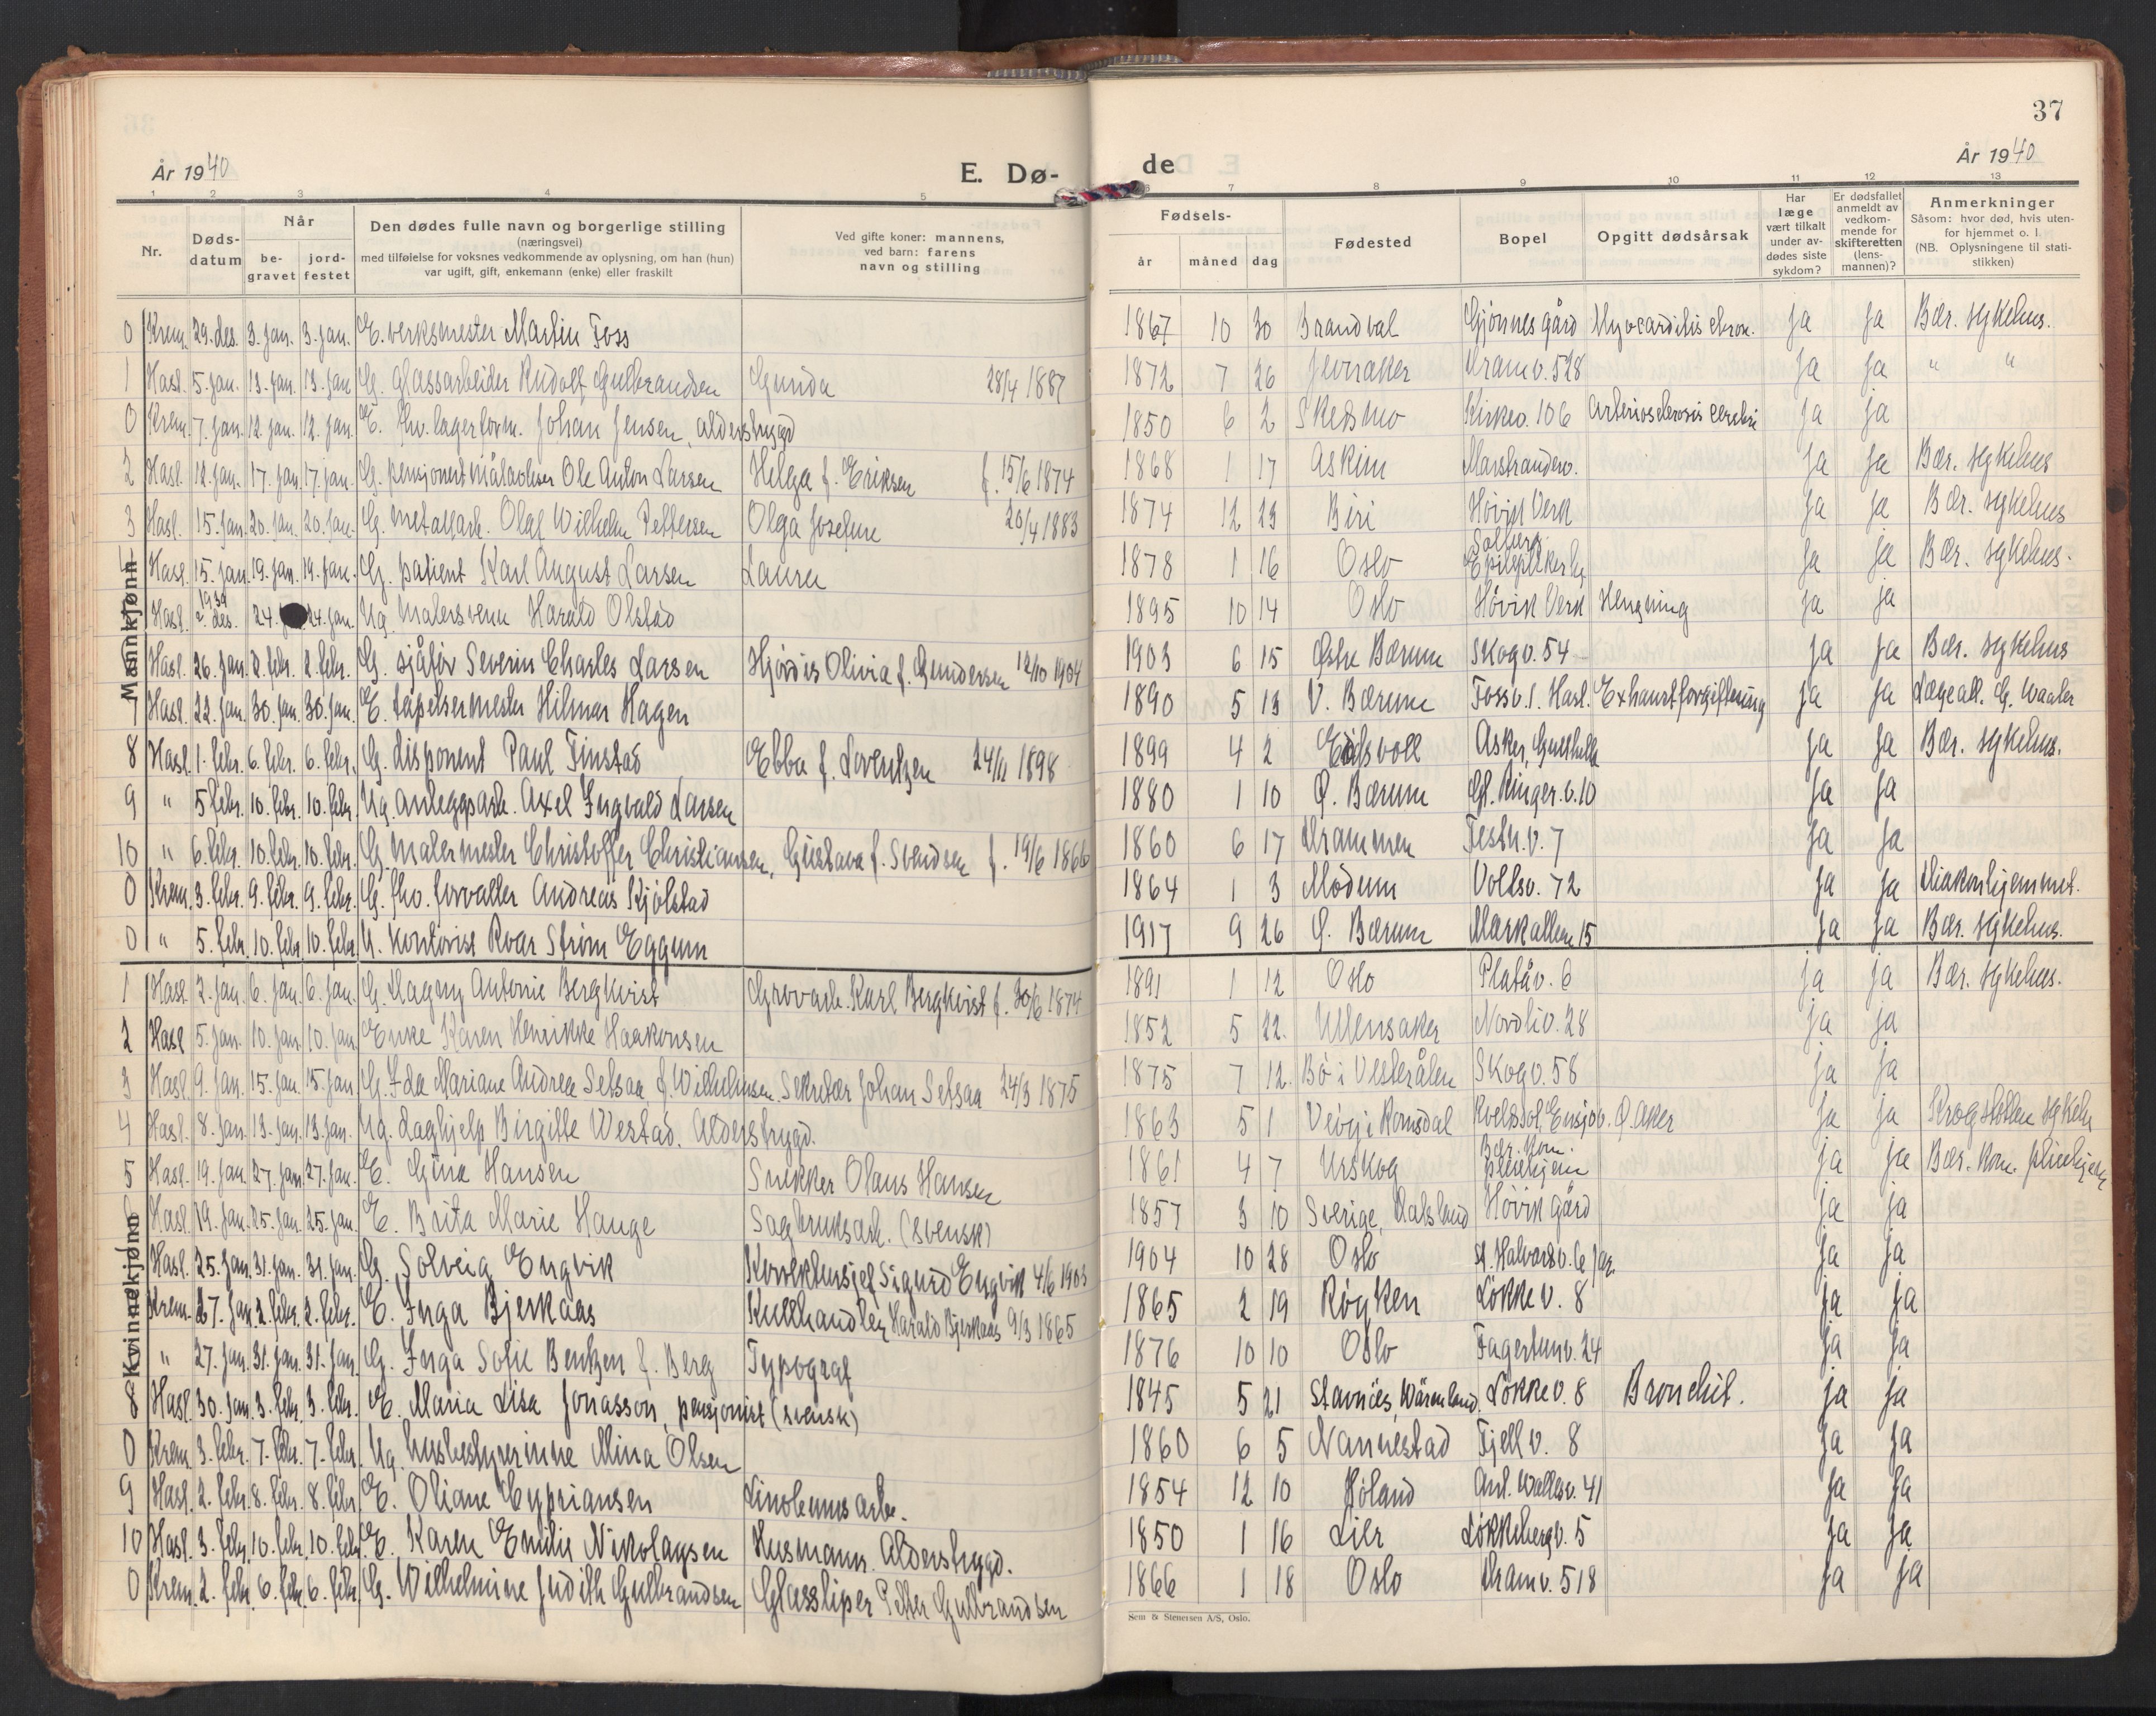 37
År 1940
E. Dø-
de
År 1940
1 2 3 4 5
6 7 8 9 10 11 12 13
Nr.
Døds-
datum
Når
be-
gravet
jord-
festet
Den dødes fulle navn og borgerlige stilling
(næringsvei)
med tilføielse for voksnes vedkommende av oplysning, om han (hun)
var ugift, gift, enkemann (enke) eller fraskilt
Ved gifte koner: mannens,
ved barn: farens
navn og stilling
Fødsels-
år måned dag
Fødested
Bopel
Opgitt dødsårsak
Har
læge
vært tilkalt
under av-
dødes siste
sykdom?
Er dødsfallet
anmeldt av
vedkom-
mende for
skifteretten
(lens-
mannen)?
Anmerkninger
Såsom: hvor død, hvis uten-
for hjemmet o. l.
(NB. Oplysningene til stati-
stikken)
Mannkjønn
0 Krem. 29. des. 3. jan. 3. jan. E. verksmester Martin Foss 1867 10 30 Brandval Gjønnes gård Myocarditis chron. ja ja Bær. sykehus.
1 Hasl. 5. jan. 13. jan. 13. jan G. Glassarbeider Rudolf Gulbrandsen Gunda 28/4 1887 1872 7 26 Jevnaker Dramv. 528 ja ja " "
0 Krem. 7. jan. 12. jan. 12. jan. E. fhv. lagerform. Johan Jensen, alderstrygd 1850 6 2 Skedsmo Kirkev. 106 Arteriosclerosis cerebri ja ja
2 Hasl. 12. jan. 17. jan. 17. jan. G. pensjonert målavleser Ole Anton Larsen Helga f. Eriksen f. 15/6 1874 1868 1 17 Askim Marstranderv. ja ja Bær. sykehus
3 Hasl. 15. jan. 20. jan. 20. jan. G. metallarb. Olaf Wilhelm Pettersen Olga Josefine 20/4 1883 1874 12 23 Biri Høvik Verk ja ja Bær. sykehus
Hasl. 15. jan. 19. jan. 19. jan. G. patient Karl August Larsen Laura 1878 1 16 Oslo Solberg ja ja Bær. sykehus.
Hasl. 1939 2. des. 24. 24. jan. Ug. Malersvenn Harald Olstad 1895 10 14 Oslo Høvik Verk Hengning ja ja
Hasl. 26. jan. 2. febr. 2. febr. G. sjåfør Severin Charles Larsen Hjørdis Olivia f. Gundersen 12/10 1904 1903 6 15 Østre Bærum Skogv. 54 ja ja Bær. sykehus
7 Hasl. 22. jan. 30. jan. 30. jan. E. tapetsermester Hilmar Hagen 1890 5 13 V. Bærum Fossv. 1. Hasl. Exhaustforgiftning ja ja Lægeatt. G. Waaler
8 Hasl. 1. febr. 6. febr. 6. febr. G. disponent Paul Finstad Ebba f. Lorentzen 24/11 1898 1899 4 2 Eidsvoll Asker, ja ja Bær. sykehus.
9 " 5. febr. 10. febr. 10. febr. Ug. anleggsarb. Axel Ingvald Larsen 1880 1 10 Ø. Bærum Gl. Ringer.v. 10 ja ja
10 " 6. febr. 10. febr. 10. febr. G. Malermester Christoffer Christiansen, Gustava f. Svendsen f. 19/6 1866 1860 6 17 Drammen Festn.v. 7 ja ja
0 Krem. 3. febr. 9. febr. 9. febr. G. fhv. forvalter Andreas Kjølstad 1864 1 3 Modum Vollsv. 72 ja ja Diakonhjemmet.
0 " 5. febr. 10. febr. 10. febr. U. Kontorist Roar Strøm Eggum 1917 9 26 Ø. Bærum Markalleen 15 ja ja Bær. sykehus.
Kvinnekjønn
1 Hasl. 2. jan. 6. jan. 6. jan. G. Dagny Antonie Bergkvist Grovarb. Karl Bergkvist f. 30/6 1874 1891 1 12 Oslo Platåv. 6 ja ja Bær. sykehus.
2 Hasl 5. jan. 10. jan. 10. jan. Enke Karen Henrikke Haakonsen 1852 5 22. Ullensaker Nordliv. 28 ja ja
3 Hasl. 9. jan. 15. jan 15. jan G. Ida Mariane Andrea Setsaa, f. Wilhelmsen. Sekretær Johan Setsaa 24/3 1875 1875 7 12. Bø i Vesterålen Skogv. 58 ja ja
4 Hasl. 8. jan. 13. jan. 13. jan. Ug. Daghjelp Birgitte Westad. Alderstrygd. 1863 5 1 Veøy i Romsdal Ensjøv. Ø. Aker ja ja Krogstøtten sykeh.
5 Hasl. 19. jan. 27. jan. 27. jan. E. Gina Hansen Snekker Olaus Hansen 1861 4 7 Urskog Bær. kom. pleiehjem ja ja Bær. kom. pleiehjem
6 Hasl. 19. jan. 25. jan. 25. jan. E. Brita Marie Hauge Sagbruksarb. (svensk) 1857 3 10 Sverige, Dalsland Høvik gård ja ja
Hasl. 25. jan. 31. jan. 31. jan. G. Solveig Engvik Kontorsjef Sigurd Engvik 4/6 1903 1904 10 28 Oslo St. Halvardsv. 6 Jar. ja ja
Krem. 27. jan. 2. febr. 2. febr. E. Inga Bjerkaas Kullhandler Harald Bjerkaas 9/3 1865 1865 2 19 Røyken Løkkev. 8 ja ja
" 27. jan. 31. jan. 31. jan. G. Inga Sofie Bentzen f. Berg Typograf 1876 10 10 Oslo Fagertunv. 24 ja ja
8 Hasl. 30. jan. 3. febr. 3. febr. E. Maria Lisa Jonasson, pensjonist (svensk) 1845 5 21 Stavnäs, Wärmland. Løkkev. 8 Bronchit. ja ja
0 Krem 3. febr. 7. febr. 7. febr. Ug. husbestyrerinne Mina Olsen 1860 6 5 Nannestad Fjellv. 8 ja ja
9 Hasl. 2. febr. 8. febr. 8. febr. E. Oliane Cypriansen Linoleumsarb. 1854 12 10 Høland Ant. Wallesv. 41 ja ja
10 Hasl. 3. febr. 10. febr. 10. febr. E. Karen Emilie Nikolaysen Husmann. Alderstrygd. 1850 1 16 Lier Løkkebergv. 5 ja ja
0 Krem. 2. febr. 6. febr. 6. febr. G. Wilhelmine Judith Gulbrandsen Glassliper Petter Gulbrandsen 1866 1 18 Oslo Dramv. 518 ja ja
Sem & Stenersen A/S, Oslo.